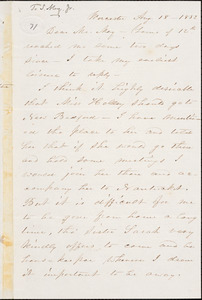 To S. May, Jr.
Worcester Aug 18 - 1855
Dear Mr. May - Yours of 16th
reached me some two days
since - I take my earliest
leisure to reply -
I think it highly desirable
that Miss Holley should go to
New Bedford - I have
the place to her and told
her that if she would go there
and have some meetings I
would join her there and ac-
company her to Nantucket.
But it is difficult for me
to be gone from home a long
time, tho Sister Sarah very
kindly offers to come and be
housekeeper when I deem
it important to be away.